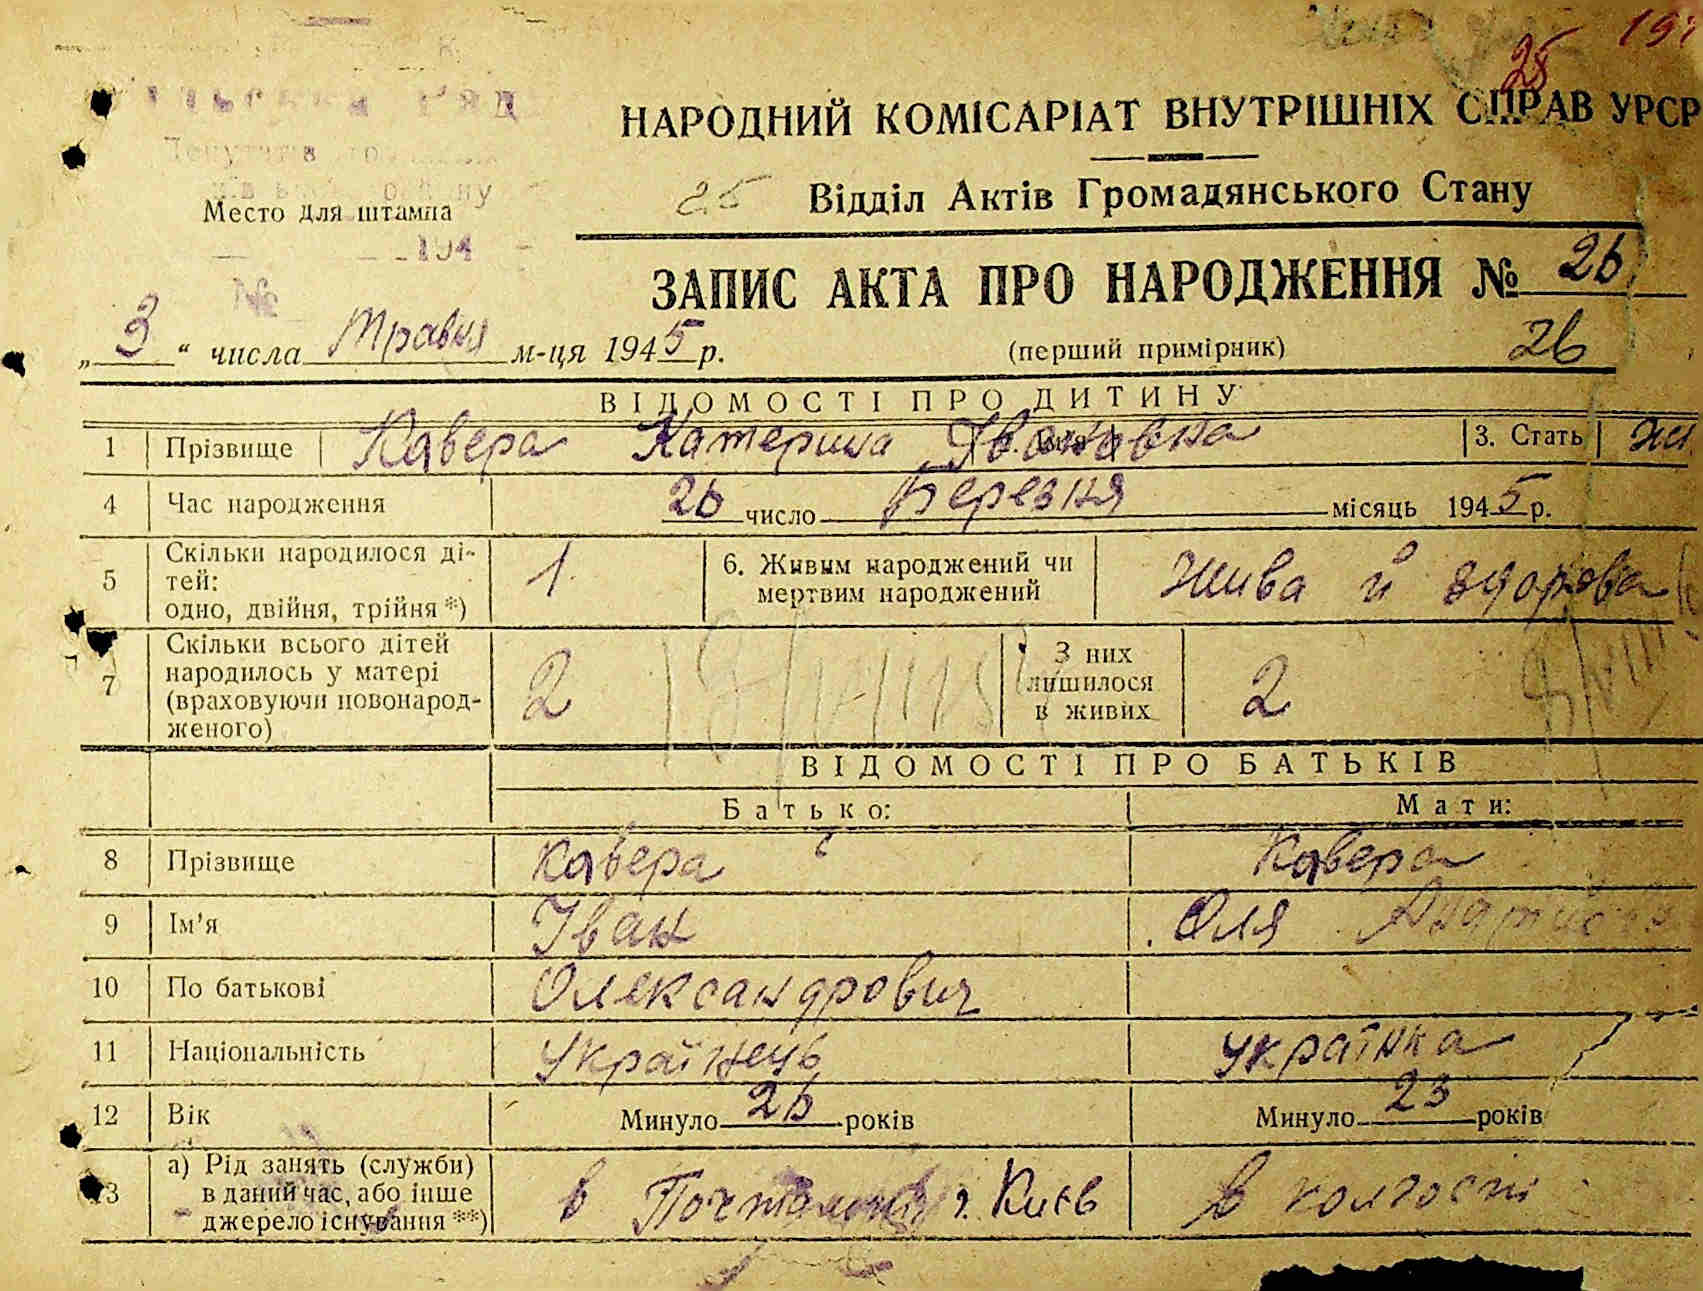 25
НАРОДНИЙ КОМІСАРІАТ ВНУТРІШНІХ СПРАВ УРСР
25 Відділ Актів Громадянського Стану
Место для штампа
194
№
ЗАПИС АКТА ПРО НАРОДЖЕННЯ № 26
„3“ числа Травня м-ця 1945 р.
(перший примірник) 26
ВІДОМОСТІ ПРО ДИТИНУ
1 Прізвище Кавера Катерина Івановна 3. Стать жі
4 Час народження 26 число Березня місяць 1945 р.
5 Скільки народилося дітей: одно, двійня, трійня *) 1 6. Живим народжений чи мертвим народжений Жива й здорова
7 Скільки всього дітей народилось у матері (враховуючи новонародженого) 2 З них лишилося в живих 2
ВІДОМОСТІ ПРО БАТЬКІВ
Батько: Мати:
8 Прізвище Кавера Кавера
9 Ім'я Іван Оля
10 По батькові Олександрович
11 Національність Українець Українка
12 Вік Минуло 26 років Минуло 23 років
13 а) Рід занять (служби) в даний час, або інше джерело існування **) в г. Київ в колгоспі